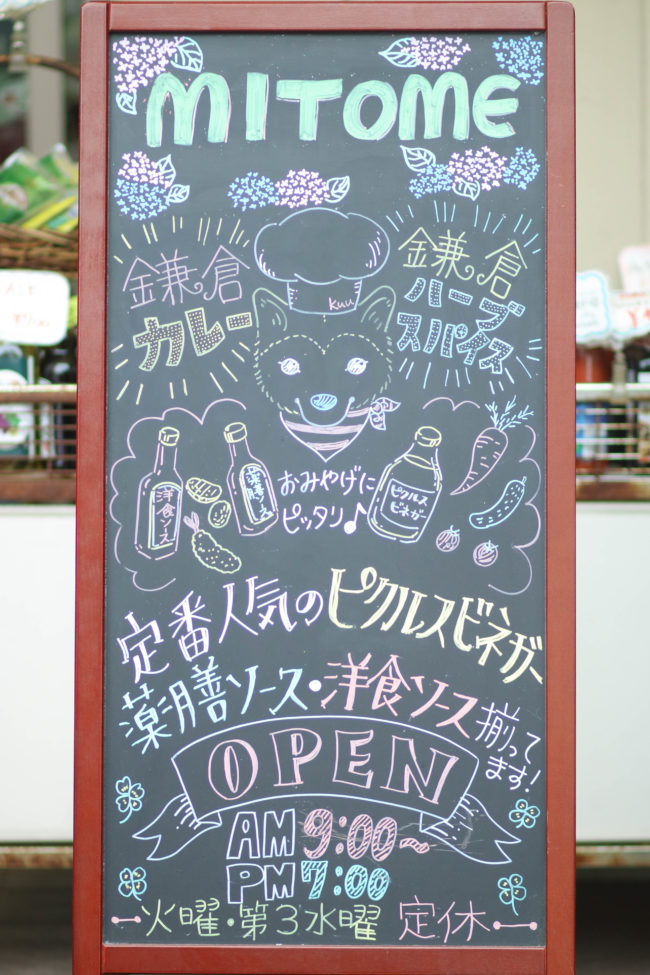 MITOME
鎌倉
カレー
Kuu
鎌倉
ハーブ
スパイス
洋食ソース
薬膳ソース
おみやげに
ピッタリ♪
ピクルス
ビネガー
定番人気のピクルスビネガー
薬膳ソース・洋食ソース揃ってます!
OPEN
AM 9:00~
PM 7:00
火曜・第3水曜 定休